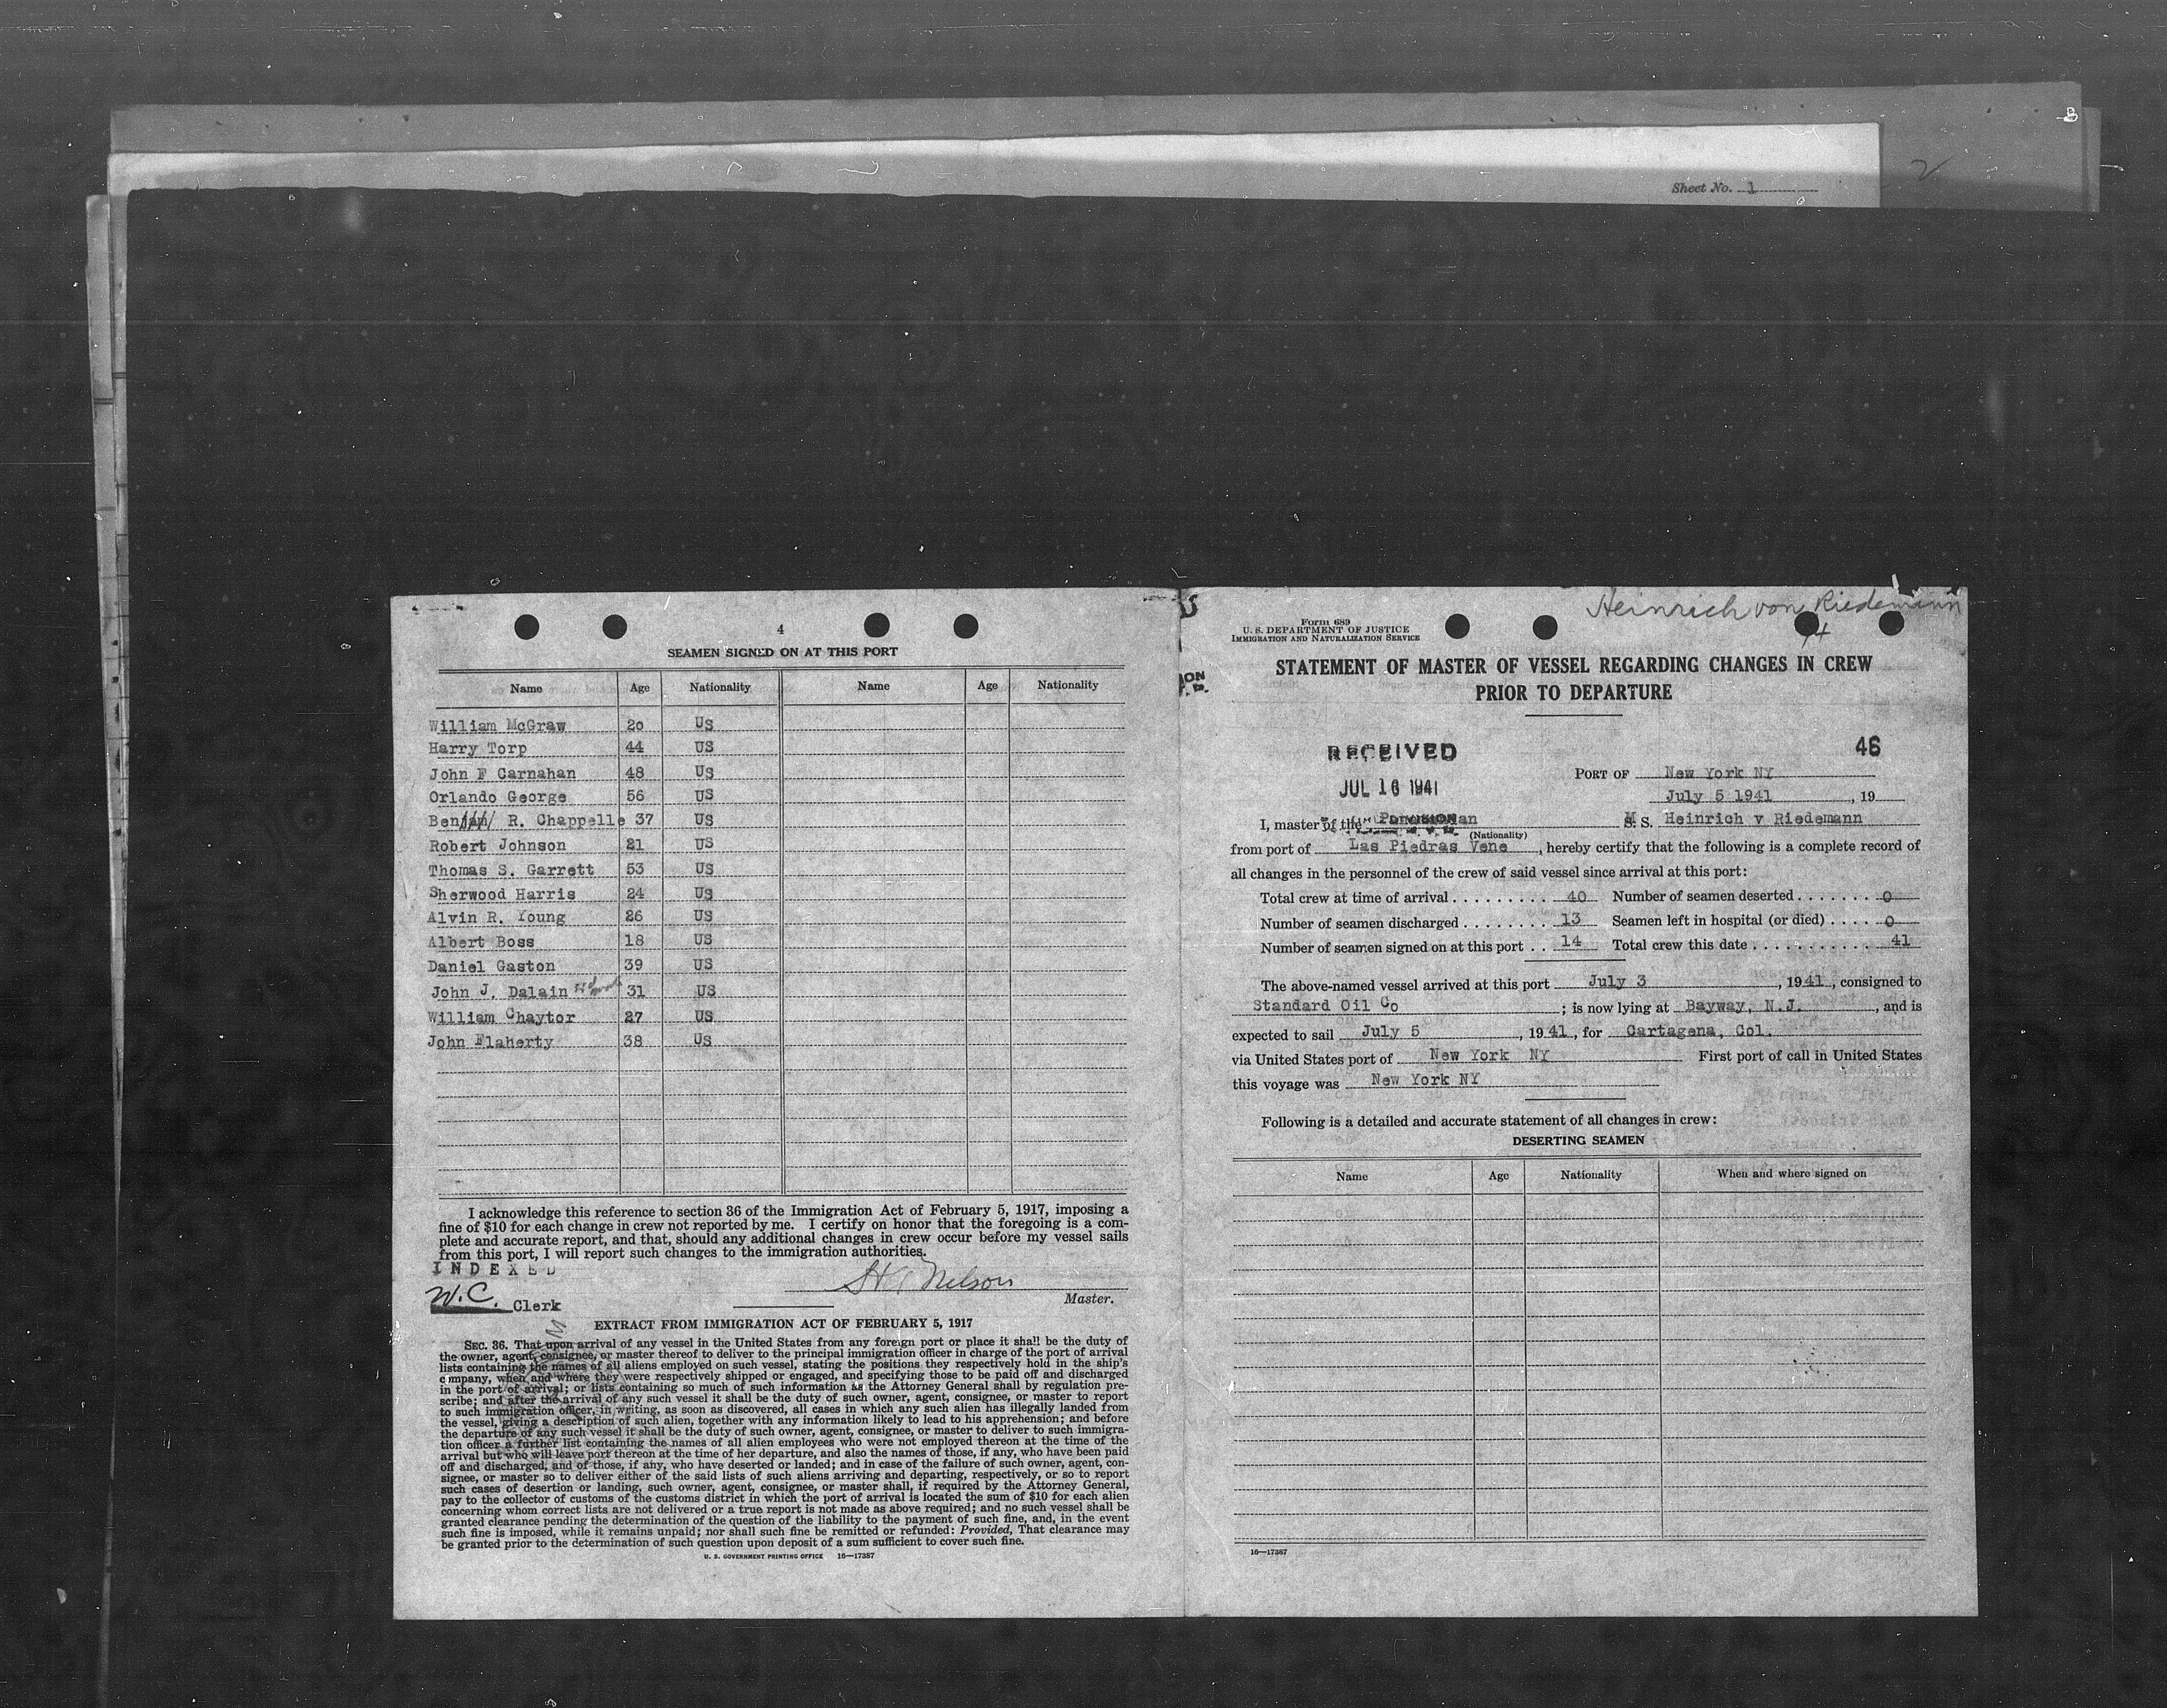 Sheet No. 1
2
4
SEAMEN SIGNED ON AT THIS PORT
Name Age Nationality Name Age Nationality
William McGraw 20 US
Harry Torp 44 US
John F Carnahan 48 US
Orlando George 56 US
Benjan R. Chappelle 37 US
Robert Johnson 21 US
Thomas S. Garrett 53 US
Sherwood Harris 24 US
Alvin R. Young 26 US
Albert Boss 18 US
Daniel Gaston 39 US
John J. Dalain 31 US
William Chaytor 27 US
John Flaherty 38 US
I acknowledge this reference to section 36 of the Immigration Act of February 5, 1917, imposing a
fine of $10 for each change in crew not reported by me. I certify on honor that the foregoing is a com-
plete and accurate report, and that, should any additional changes in crew occur before my vessel sails
from this port, I will report such changes to the immigration authorities.
INDEXED
W.C. Clerk
Nelson
Master.
EXTRACT FROM IMMIGRATION ACT OF FEBRUARY 5, 1917
SEC. 36. That upon arrival of any vessel in the United States from any foreign port or place it shall be the duty of
the owner, agent, consignee, or master thereof to deliver to the principal immigration officer in charge of the port of arrival
lists containing the names of all aliens employed on such vessel, stating the positions they respectively hold in the ship's
company, when and where they were respectively shipped or engaged, and specifying those to be paid off and discharged
in the port of arrival; or lists containing so much of such information as the Attorney General shall by regulation pre-
scribe; and after the arrival of any such vessel it shall be the duty of such owner, agent, consignee, or master to report
to such immigration officer, in writing, as soon as discovered, all cases in which any such alien has illegally landed from
the vessel, giving a description of such alien, together with any information likely to lead to his apprehension; and before
the departure of any such vessel it shall be the duty of such owner, agent, consignee, or master to deliver to such immigra-
tion officer a further list containing the names of all alien employees who were not employed thereon at the time of the
arrival but who will leave port thereon at the time of her departure, and also the names of those, if any, who have been paid
off and discharged, and of those, if any, who have deserted or landed; and in case of the failure of such owner, agent, con-
signee, or master so to deliver either of the said lists of such aliens arriving and departing, respectively, or so to report
such cases of desertion or landing, such owner, agent, consignee, or master shall, if required by the Attorney General,
pay to the collector of customs of the customs district in which the port of arrival is located the sum of $10 for each alien
concerning whom correct lists are not delivered or a true report is not made as above required; and no such vessel shall be
granted clearance pending the determination of the question of the liability to the payment of such fine, and, in the event
such fine is imposed, while it remains unpaid; nor shall such fine be remitted or refunded: Provided, That clearance may
be granted prior to the determination of such question upon deposit of a sum sufficient to cover such fine.
U. S. GOVERNMENT PRINTING OFFICE 16—17387
Heinrich von Riedemann
Form 689
U. S. DEPARTMENT OF JUSTICE
IMMIGRATION AND NATURALIZATION SERVICE
STATEMENT OF MASTER OF VESSEL REGARDING CHANGES IN CREW
PRIOR TO DEPARTURE
RECEIVED
JUL 16 1941
46
PORT OF New York NY
July 5 1941, 19
I, master of the Panamanian M. S. Heinrich v Riedemann
(Nationality)
from port of Las Piedras Vene, hereby certify that the following is a complete record of
all changes in the personnel of the crew of said vessel since arrival at this port:
Total crew at time of arrival . . . . . . . . . 40 Number of seamen deserted . . . . . . . 0
Number of seamen discharged . . . . . . . . 13 Seamen left in hospital (or died) . . . . 0
Number of seamen signed on at this port . . 14 Total crew this date . . . . . . . . . . . 41
The above-named vessel arrived at this port July 3, 1941, consigned to
Standard Oil Co; is now lying at Bayway, N.J., and is
expected to sail July 5, 1941, for Cartagena, Col.
via United States port of New York NY First port of call in United States
this voyage was New York NY
Following is a detailed and accurate statement of all changes in crew:
DESERTING SEAMEN
Name Age Nationality When and where signed on
16—17387